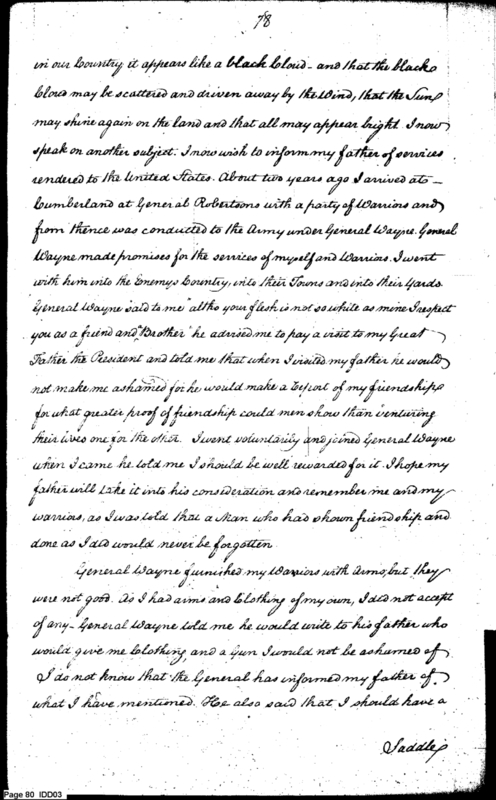 78
in our Country it appears like a black Cloud - and that the black
Cloud may be scattered and driven away by the Wind, that the Sun
may shine again on the land and that all may appear bright. I now
speak on another subject. I now wish to inform my father of services
rendered to the United States. About two years ago I arrived at -
Cumberland at General Robertsons with a party of Warriors and
from thence was conducted to the Army under General Wayne. General
Wayne made promises for the services of myself and Warriors. I went
with him into the Enemys Country, into their Towns and into their Yards.
General Wayne said to me "altho your flesh is not so white as mine I respect
you as a friend and "Brother" he advised me to pay a visit to my Great
Father the President and told me that when I visited my father he would
not make me ashamed for he would make a report of my friendship
for what greater proof of friendship could men show than venturing
their lives one for the other. I went voluntarily and joined General Wayne
when I came he told me I should be well rewarded for it. I hope my
father will take it into his consideration and remember me and my
warriors, as I was told that a Man who had shown friendship and
done as I did would never be forgotten.
General Wayne furnished my Warriors with Arms, but they
were not good. As I had arms and Clothing of my own, I did not accept
of any - General Wayne told me he would write to his father who
would give me Clothing, and a Gun I would not be ashamed of
I do not know that the General has informed my father of
what I have mentioned. He also said that I should have a
Saddle
Page 80 IDD03